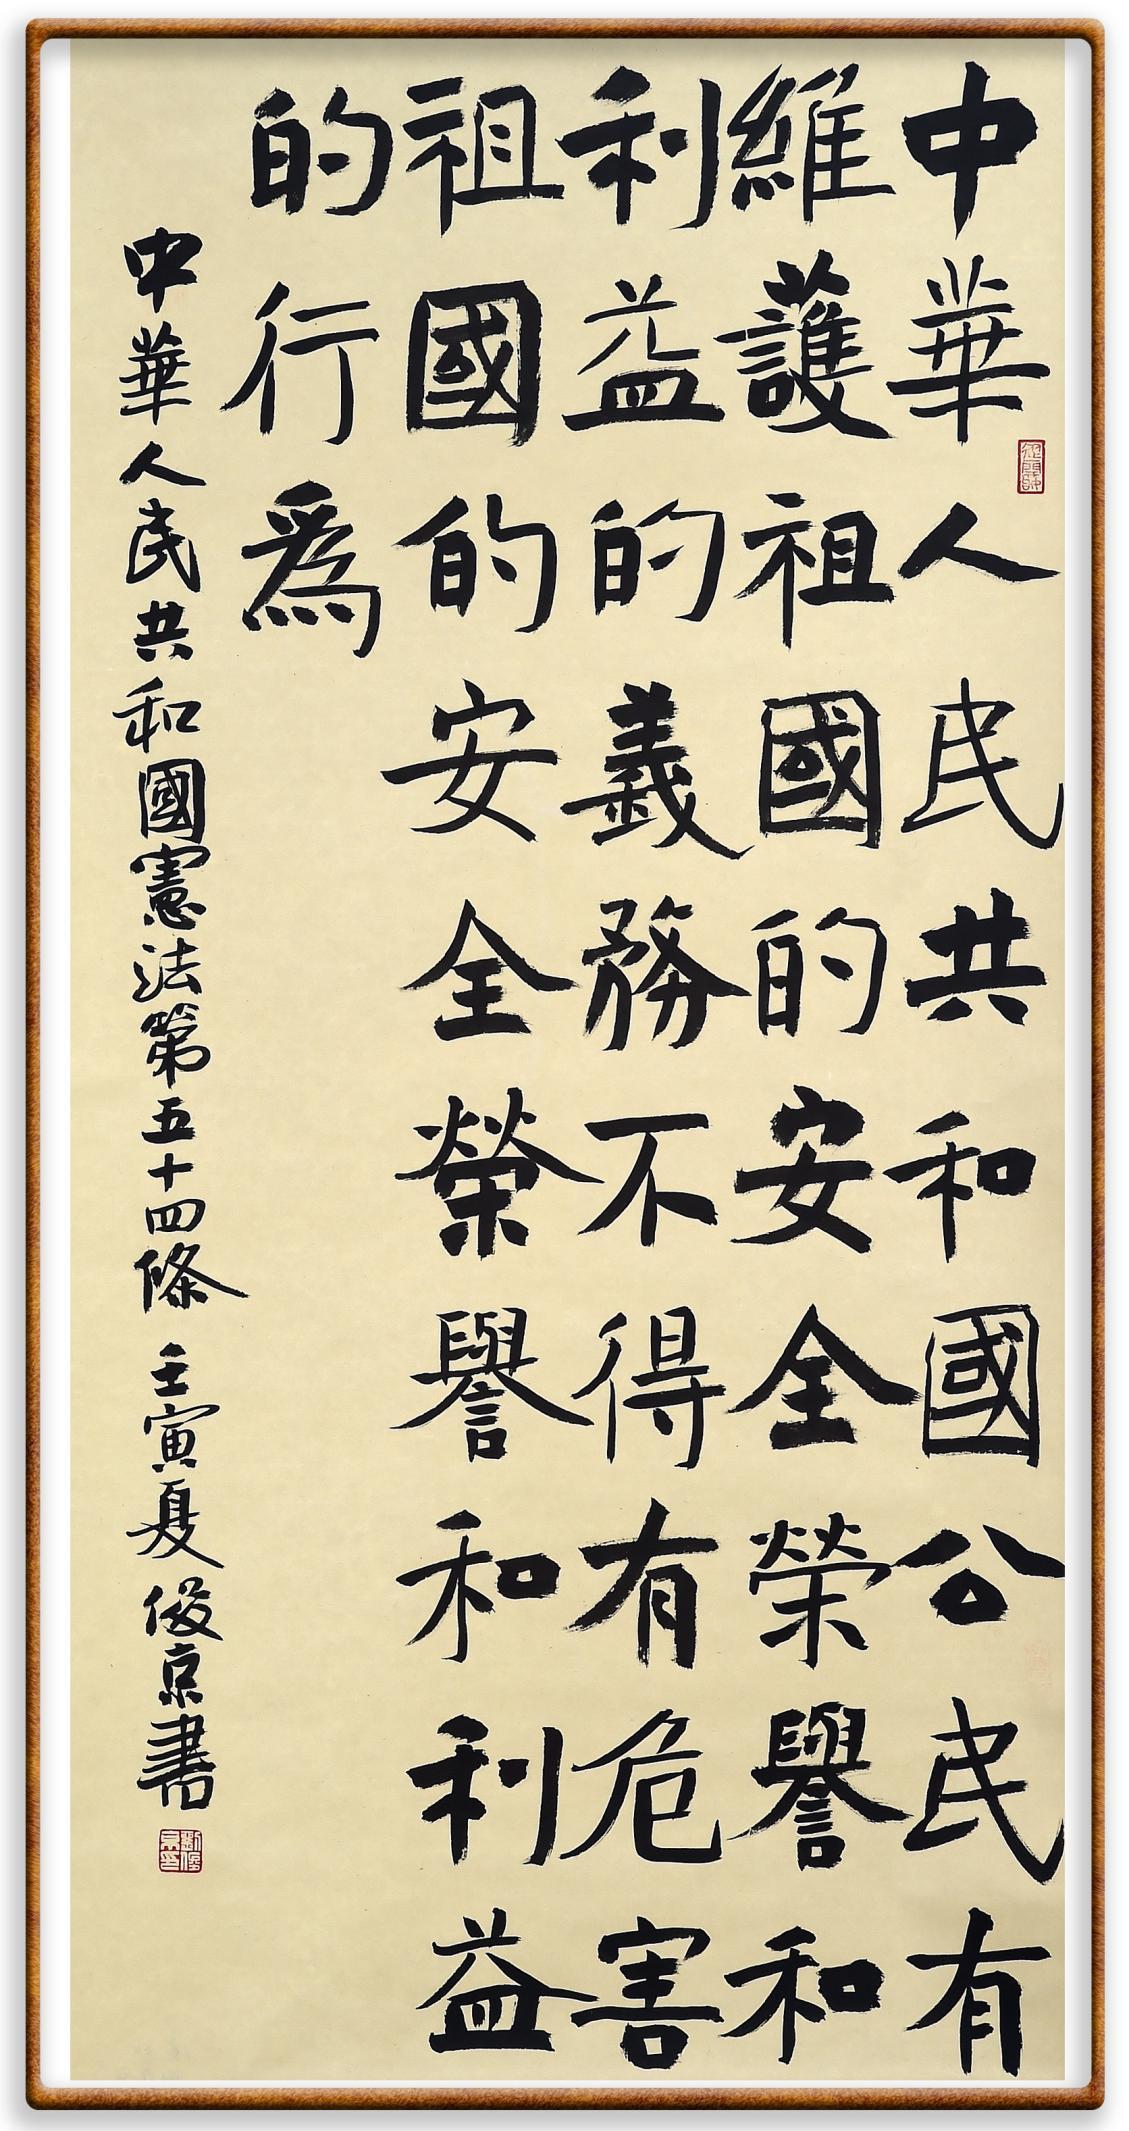 中華人民共和國公民有
維護祖國的安全榮譽和
利益的義務不得有危害
祖國的安全榮譽和利益
的行爲
中華人民共和國憲法第五十四條 壬寅夏 俊京書